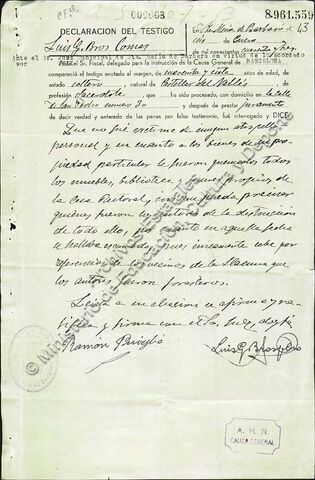 000663
8.961.559
DECLARACION DEL TESTIGO
Luis G. Bros Comas
En Sta. Maria de Barbara a 13
de Enero
de mil novecientos cuarenta y tres
ante el Sr. Juez municipal de Sta. Maria de Barbara en virtud de lo acordado
por el Sr. Fiscal, delegado para la instrucción de la Causa General de BARCELONA
compareció el testigo anotado al margen, de cuarenta y siete años de edad, de
estado soltero, natural de Castellar del Vallés, de
profesión Sacerdote, que ha sido procesado, con domicilio en la calle
de San Pedro numero 30 y después de prestar juramento
de decir verdad y enterado de las penas por falso testimonio, fué interrogado y DICE:
Que no fué victima de ningun atropello
personal y en cuanto a los bienes de su pro-
piedad particular le fueron quemados todos
los muebles, biblioteca y ropas propios de
la Casa Rectoral, sin que pueda precisar
quienes fueron los autores de la destrucción
de todo ello, por cuanto en aquella fecha
se hallaba escondido, que unicamente sabe por
referencias de los vecinos de la Llacuna que
los autores fueron forasteros.
Leida que le es se afirma y ra-
tifica y firma con el Sr. Juez, doy fé
Ramon
Luis G. Bros, Pbro
A. H. N.
CAUSA GENERAL
© Archivos Estatales
Ministerio de Educación, Cultura y Deporte